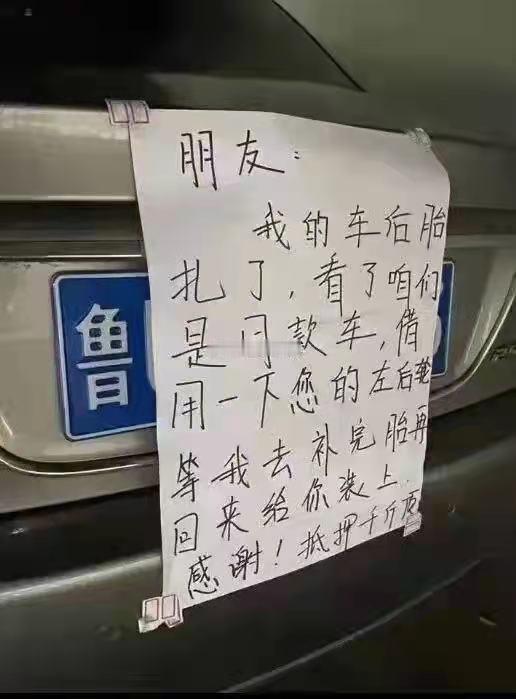 朋友：
我的车后胎
扎了，看了咱们
是同款车，借
用一下您的左后轮
等我去补完胎再
回来给你装上.
感谢！抵押千斤顶
鲁